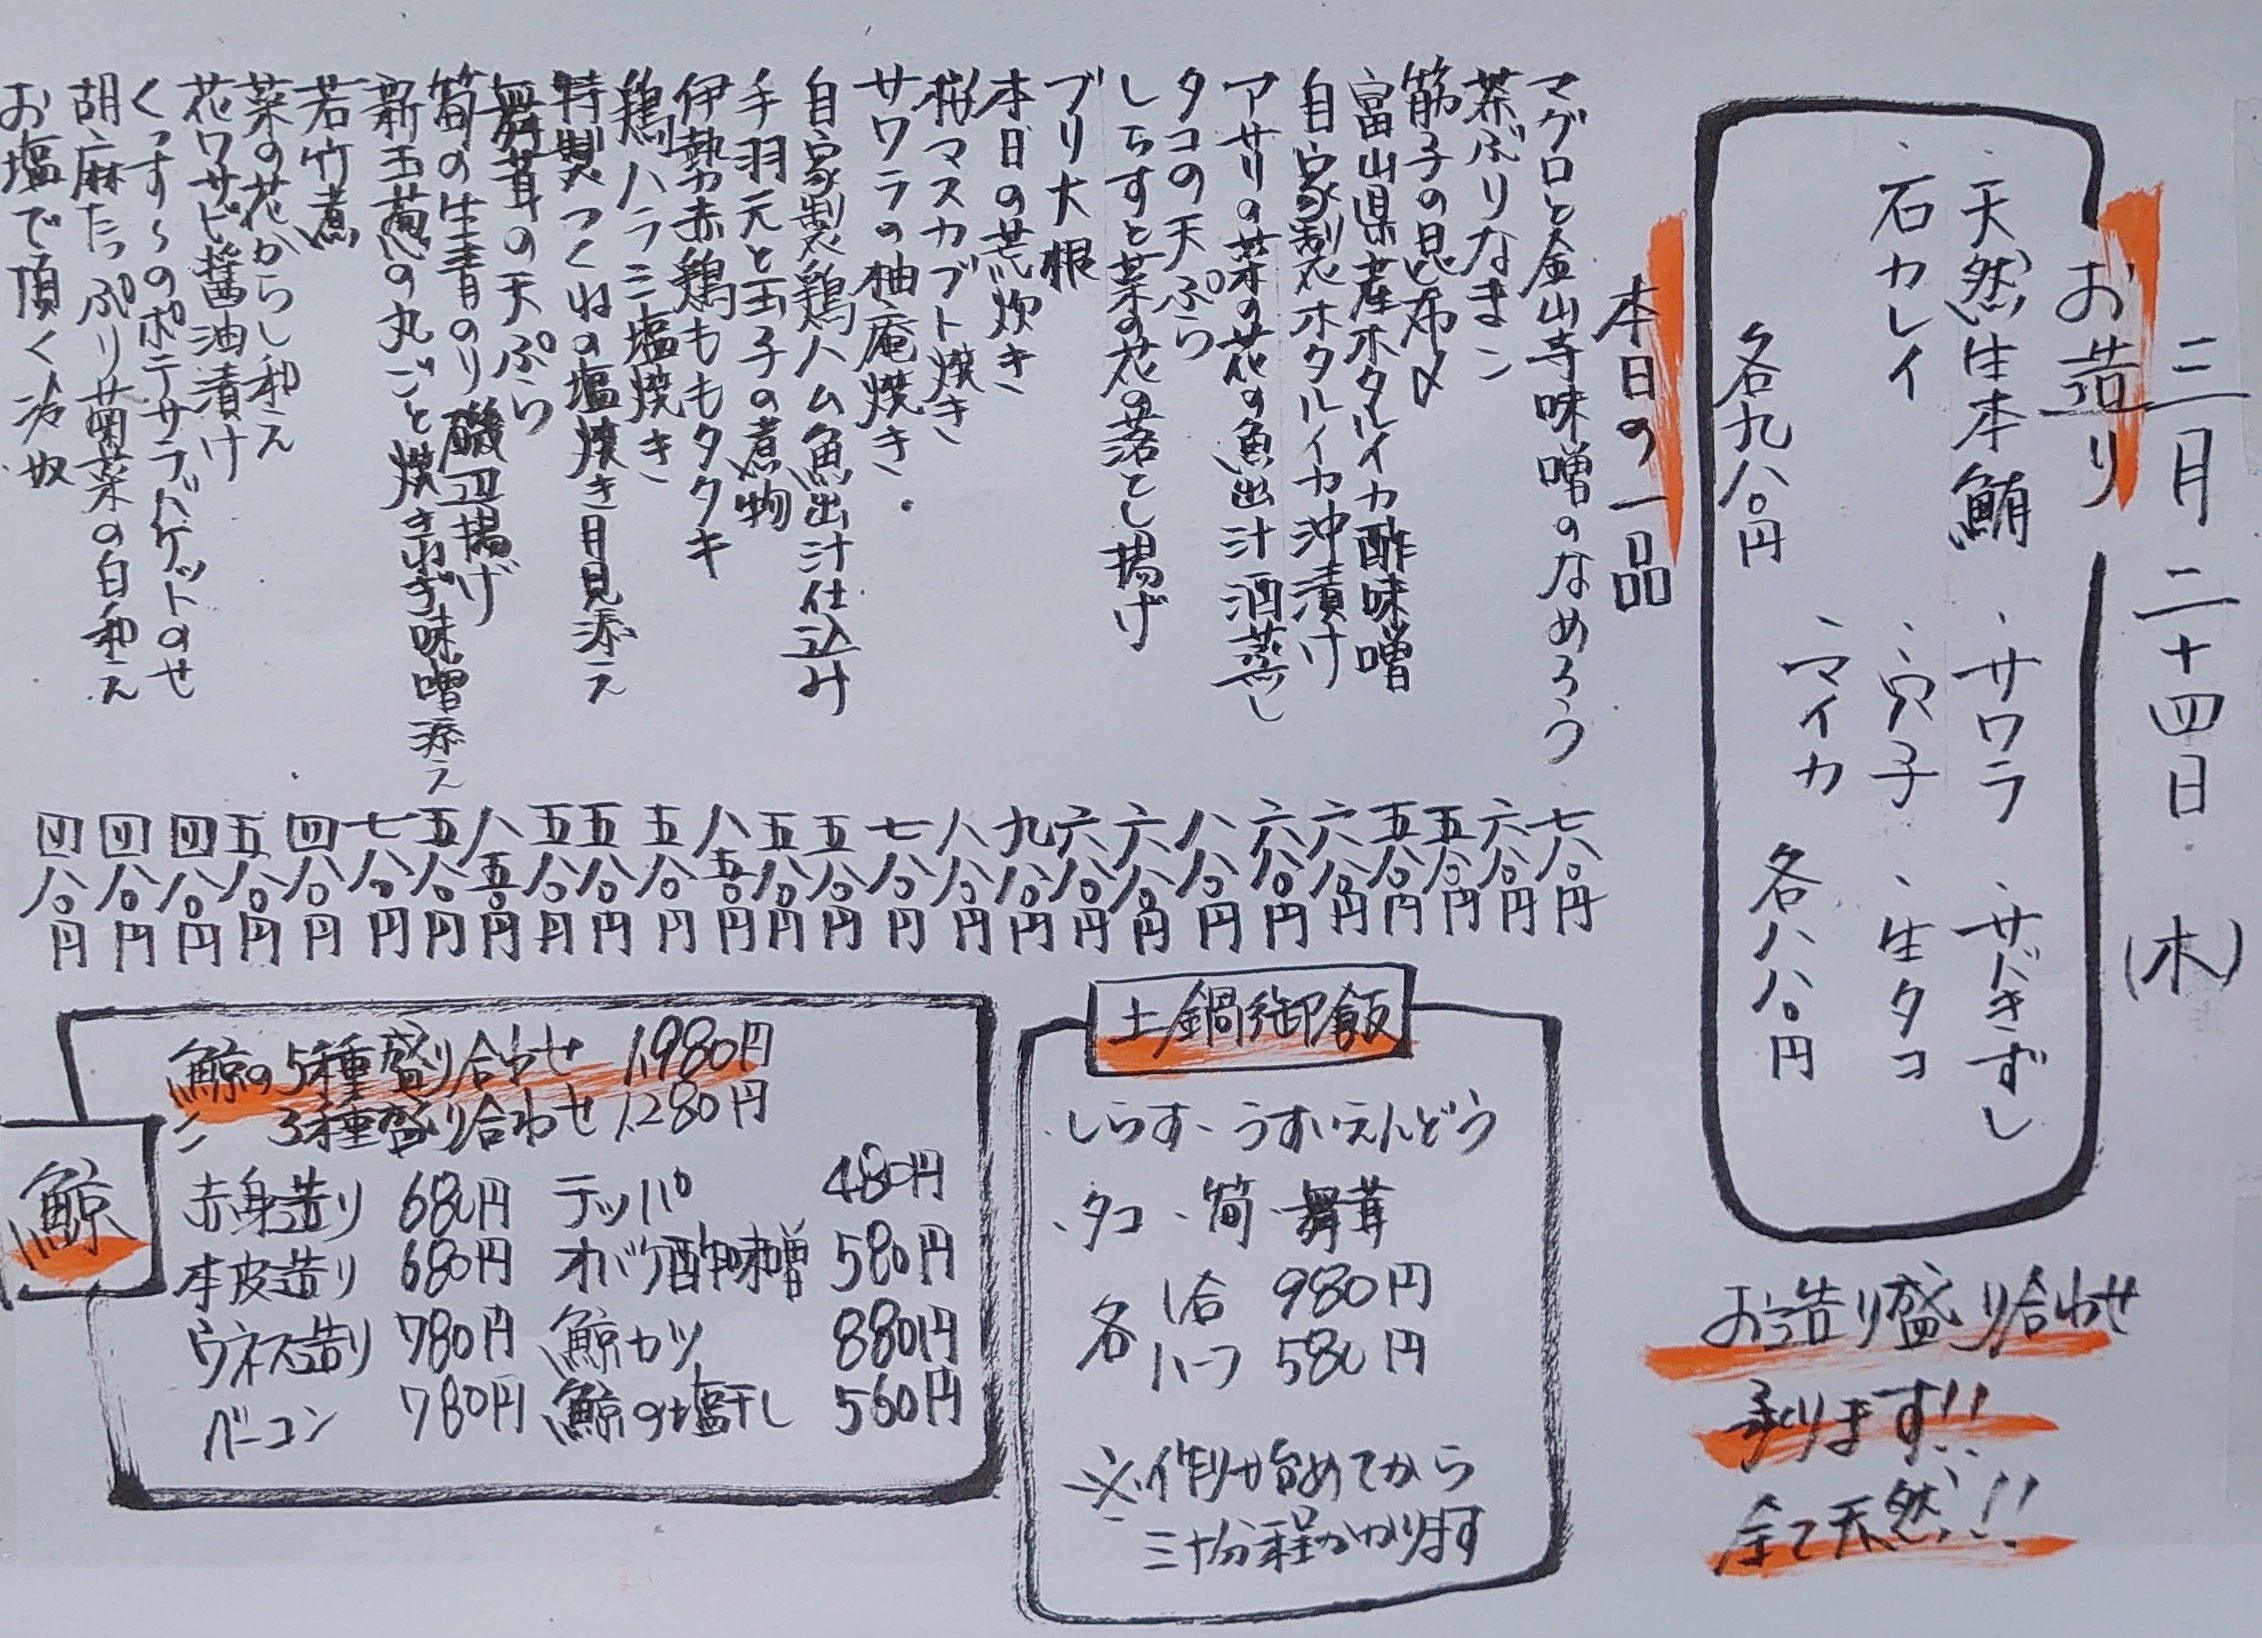 三月二十四日(木)
お造り
・天然生本鮪 ・サワラ ・サバきずし
・石カレイ ・穴子 ・生タコ
・マイカ
各九八〇円 各八八〇円
お造り盛り合わせ
承ります!!
全て天然!!
本日の一品
マグロと金山寺味噌のなめろう 七八〇円
茶ぶりなまこ 六八〇円
筋子の昆布〆 五八〇円
富山県産ホタルイカ酢味噌 五八〇円
自家製ホタルイカ沖漬け 六八〇円
アサリの菜の花の魚出汁酒蒸し 六八〇円
タコの天ぷら 八八〇円
しらすと菜の花の落とし揚げ 六八〇円
ブリ大根 六八〇円
本日の荒炊き 九八〇円
桜マスカブト焼き 八八〇円
サワラの柚庵焼き 七八〇円
自家製鶏ハム魚出汁仕込み 五八〇円
手羽元と玉子の煮物 五八〇円
伊勢赤鶏ももタタキ 八五〇円
鶏ハラミ塩焼き 五八〇円
特製つくねの塩焼き月見添え 五八〇円
舞茸の天ぷら 五八〇円
筍の生青のり磯辺揚げ 八五〇円
新玉葱の丸ごと焼きねぎ味噌添え 五八〇円
若竹煮 七八〇円
菜の花からし和え 四八〇円
花ワサビ醤油漬け 五八〇円
くっす〜のポテサラバケットのせ 四八〇円
胡麻たっぷり菊菜の白和え 四八〇円
お塩で頂く冷奴 四八〇円
土鍋御飯
・しらす・うすいえんどう
・タコ ・筍 ・舞茸
各 1合 980円
ハーフ 580円
※作り始めてから
三十分程かかります
鯨
鯨の5種盛り合わせ 1,980円
〃 3種盛り合わせ 1,280円
赤身造り 680円 テッパ 480円
本皮造り 680円 オバケ酢味噌 580円
ウネス造り 780円 鯨カツ 880円
ベーコン 780円 鯨の塩干し 560円